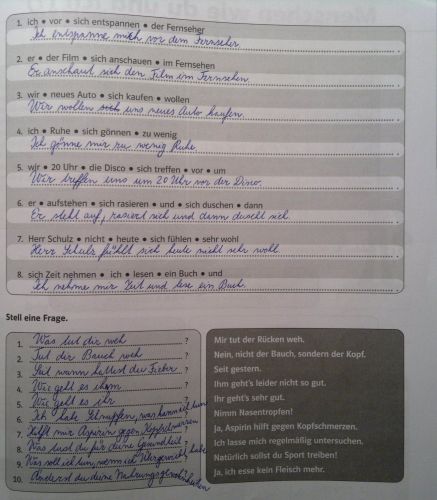 1. ich • vor • sich entspannen • der Fernseher
Ich entspanne mich vor dem Fernseher.
2. er • der Film • sich anschauen • im Fernsehen
Er anschaut sich den Film im Fernsehen.
3. wir • neues Auto • sich kaufen • wollen
Wir wollen sich uns neues Auto kaufen.
4. ich • Ruhe • sich gönnen • zu wenig
Ich gönne mir zu wenig Ruhe.
5. wir • 20 Uhr • die Disco • sich treffen • vor • um
Wir treffen uns um 20 Uhr vor der Disco.
6. er • aufstehen • sich rasieren • und • sich duschen • dann
Er steht auf, rasiert sich und dann duscht sich.
7. Herr Schulz • nicht • heute • sich fühlen • sehr wohl
Herr Schulz fühlt sich heute nicht sehr wohl.
8. sich Zeit nehmen • ich • lesen • ein Buch • und
Ich nehme mir Zeit und lese ein Buch.
Stell eine Frage.
1. Was tut dir weh ?
2. Tut der Bauch weh ?
3. Seit wann hattest du Fieber ?
4. Wie geht es ihm ?
5. Wie geht es ihr ?
6. Ich habe Schnupfen, was kann ich tun
7. Hilft mir Aspirin gegen Kopfschmerzen
8. Was tust du für deine Gesundheit ?
9. Was soll ich tun, wenn ich Übergewicht habe
10. Änderst du deine Nahrungsgewohnheiten
Mir tut der Rücken weh.
Nein, nicht der Bauch, sondern der Kopf.
Seit gestern.
Ihm geht's leider nicht so gut.
Ihr geht's sehr gut.
Nimm Nasentropfen!
Ja, Aspirin hilft gegen Kopfschmerzen.
Ich lasse mich regelmäßig untersuchen.
Natürlich sollst du Sport treiben!
Ja, ich esse kein Fleisch mehr.